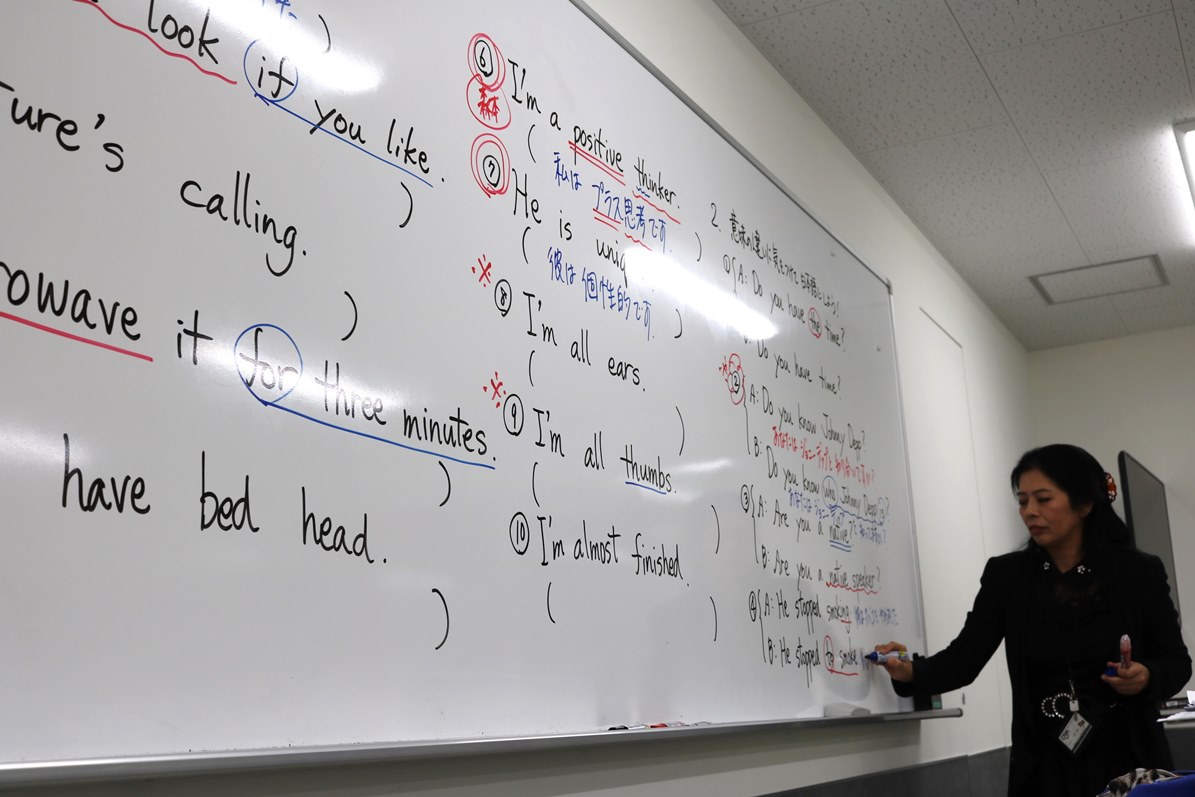 look if you like.
ture's calling.
rowave it for three minutes.
have bed head.
⑥ I'm a positive thinker.
私は プラス思考です
⑦ He is uniq
彼は 個性的です
※ ⑧ I'm all ears.
※ ⑨ I'm all thumbs.
⑩ I'm almost finished.
2. 意味の違いに気をつけて 日本語にしよう!
① A: Do you have the time?
Do you have time?
※ ② A: Do you know Johnny Depp?
あなたは ジョニー・デップと 知り合いですか?
B: Do you know who Johnny Depp is?
あなたは ジョニー
③ A: Are you a native?
B: Are you a native speaker?
④ A: He stopped smoking
B: He stopped to smoke